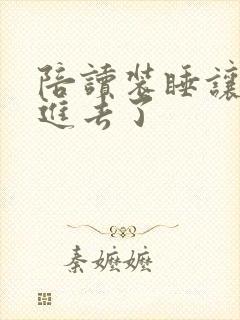 陪讀裝睡讓
進去了
秦嬤嬤